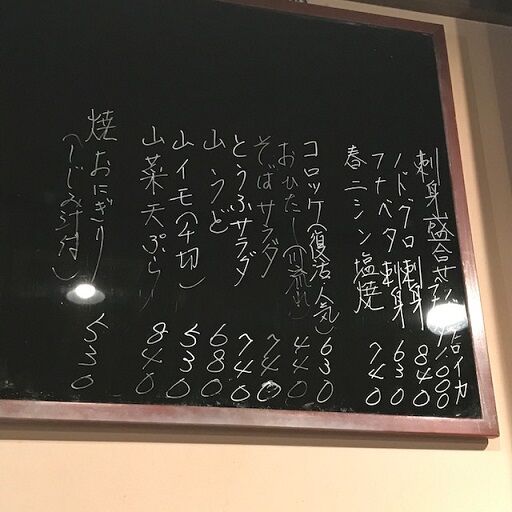 刺身盛合せ
ノドグロ刺身 840
フナベタ刺身 630
春ニシン塩焼 740
コロッケ(復活人気) 630
おひたし 440
そばサラダ 740
とうふサラダ 740
山うど 680
山イモ(千切) 530
山菜天ぷら 840
焼おにぎり 530
(しじみ汁付)